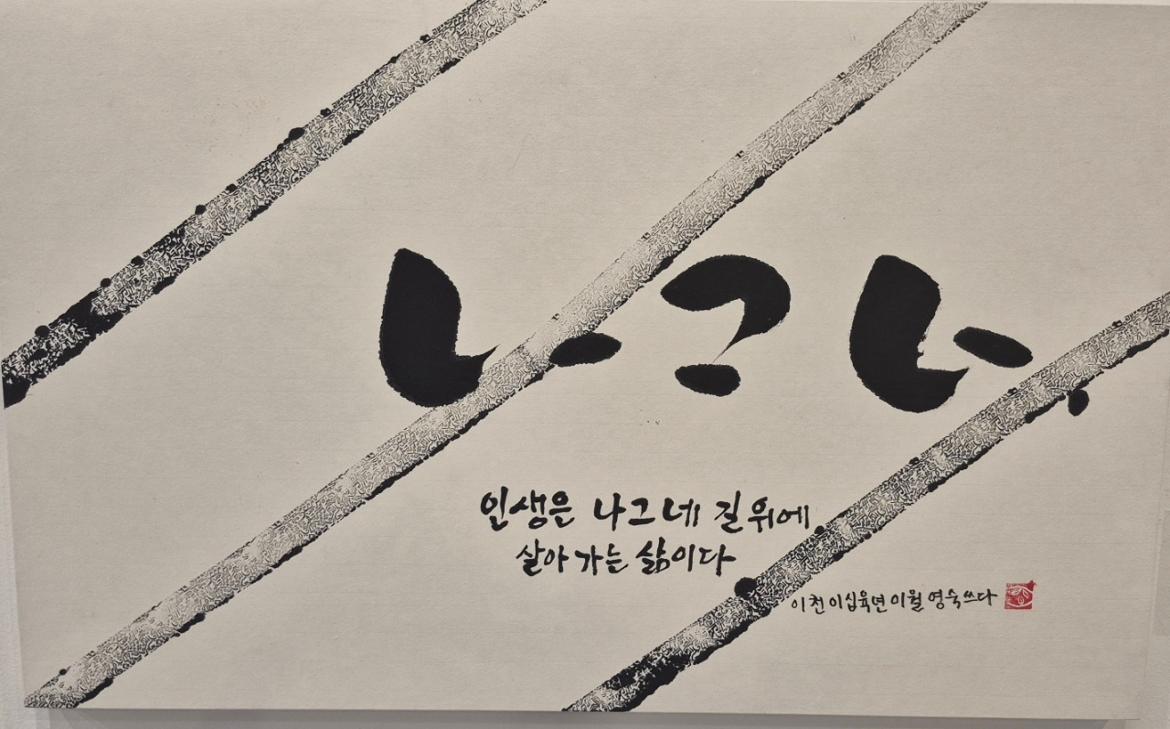 나그네
인생은 나그네 길 위에
살아 가는 삶이다
이천이십육년 이월 영숙 쓰다